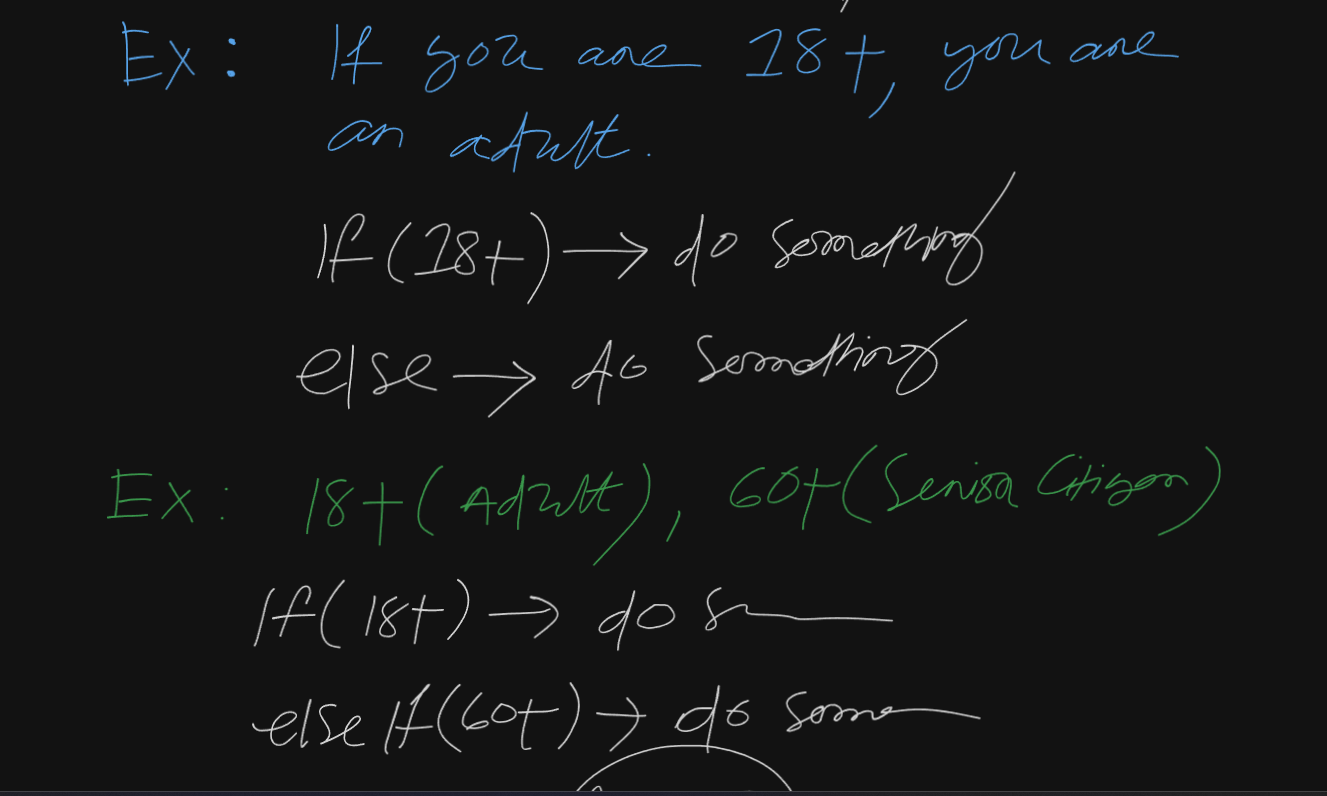 Ex: If you are 18+, you are
an adult.
If (18+) → do something
else → do something
Ex: 18+ (Adult), 60+ (Senior Citizen)
If (18+) → do s
else If (60+) → do some